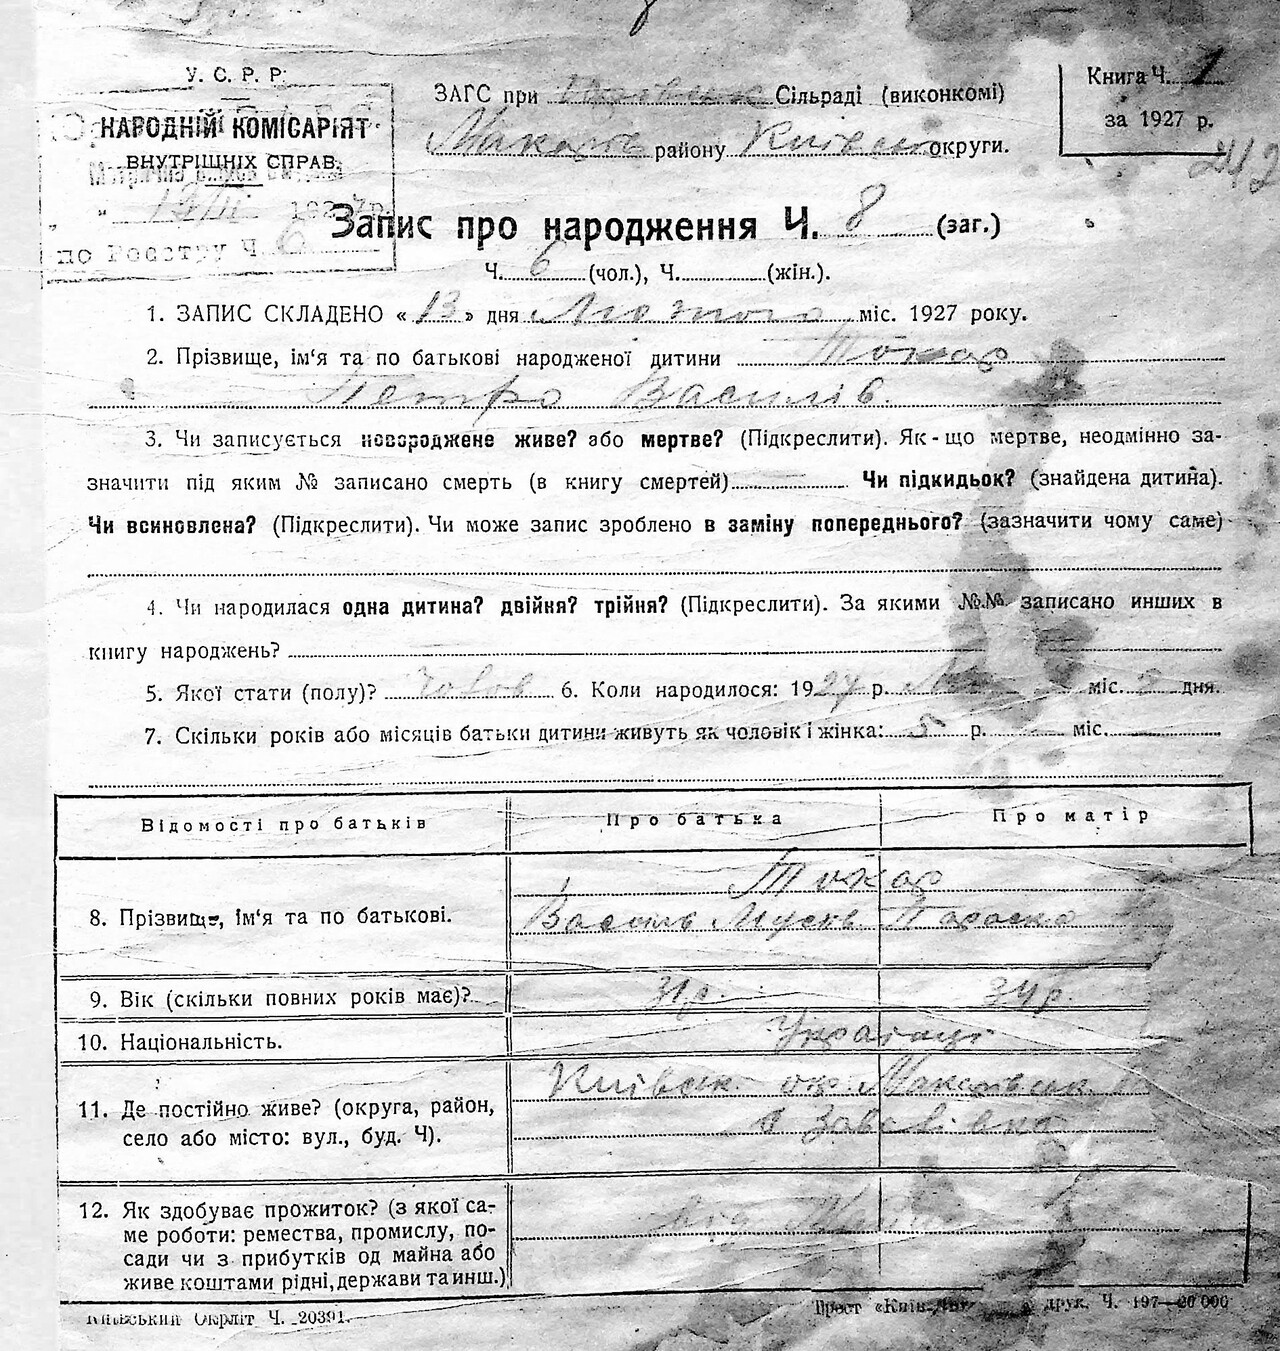 У. С. Р. Р.
НАРОДНІЙ КОМІСАРІЯТ
ВНУТРІШНІХ СПРАВ.
192 р.
по Реєстру Ч. 6
ЗАГС при Сільраді (виконкомі)
Макарів району Київськ округи.
Книга Ч. 1
за 1927 р.
242
Запис про народження Ч. 8 (заг.)
Ч. 6 (чол.), Ч. (жін.).
1. ЗАПИС СКЛАДЕНО « 13 » дня Лютого міс. 1927 року.
2. Прізвище, ім‘я та по батькові народженої дитини Токар
Петро Василів.
3. Чи записується новороджене живе? або мертве? (Підкреслити). Як-що мертве, неодмінно за-
значити під яким № записано смерть (в книгу смертей) Чи підкидьок? (знайдена дитина).
Чи всиновлена? (Підкреслити). Чи може запис зроблено в заміну попереднього? (зазначити чому саме)
4. Чи народилася одна дитина? двійня? трійня? (Підкреслити). За якими №№ записано инших в
книгу народжень?
5. Якої стати (полу)? Чолов 6. Коли народилося: 1927 р. міс. 5 дня.
7. Скільки років або місяців батьки дитини живуть як чоловік і жінка: 5 р. міс.
Відомості про батьків Про батька Про матір
Токар
8. Прізвище, ім‘я та по батькові. Василь Мусів Параска
9. Вік (скільки повних років має)? 31р. 34р.
10. Національність. Українці
11. Де постійно живе? (округа, район, село або місто: вул., буд. Ч). Київськ. окр. Макарівськ.
12. Як здобуває прожиток? (з якої са-
ме роботи: ремества, промислу, по-
сади чи з прибутків од майна або
живе коштами рідні, держави та инш.)
Київський Окрліт Ч. 20391.
Трест «Київ-Дру друк. Ч. 197—20000